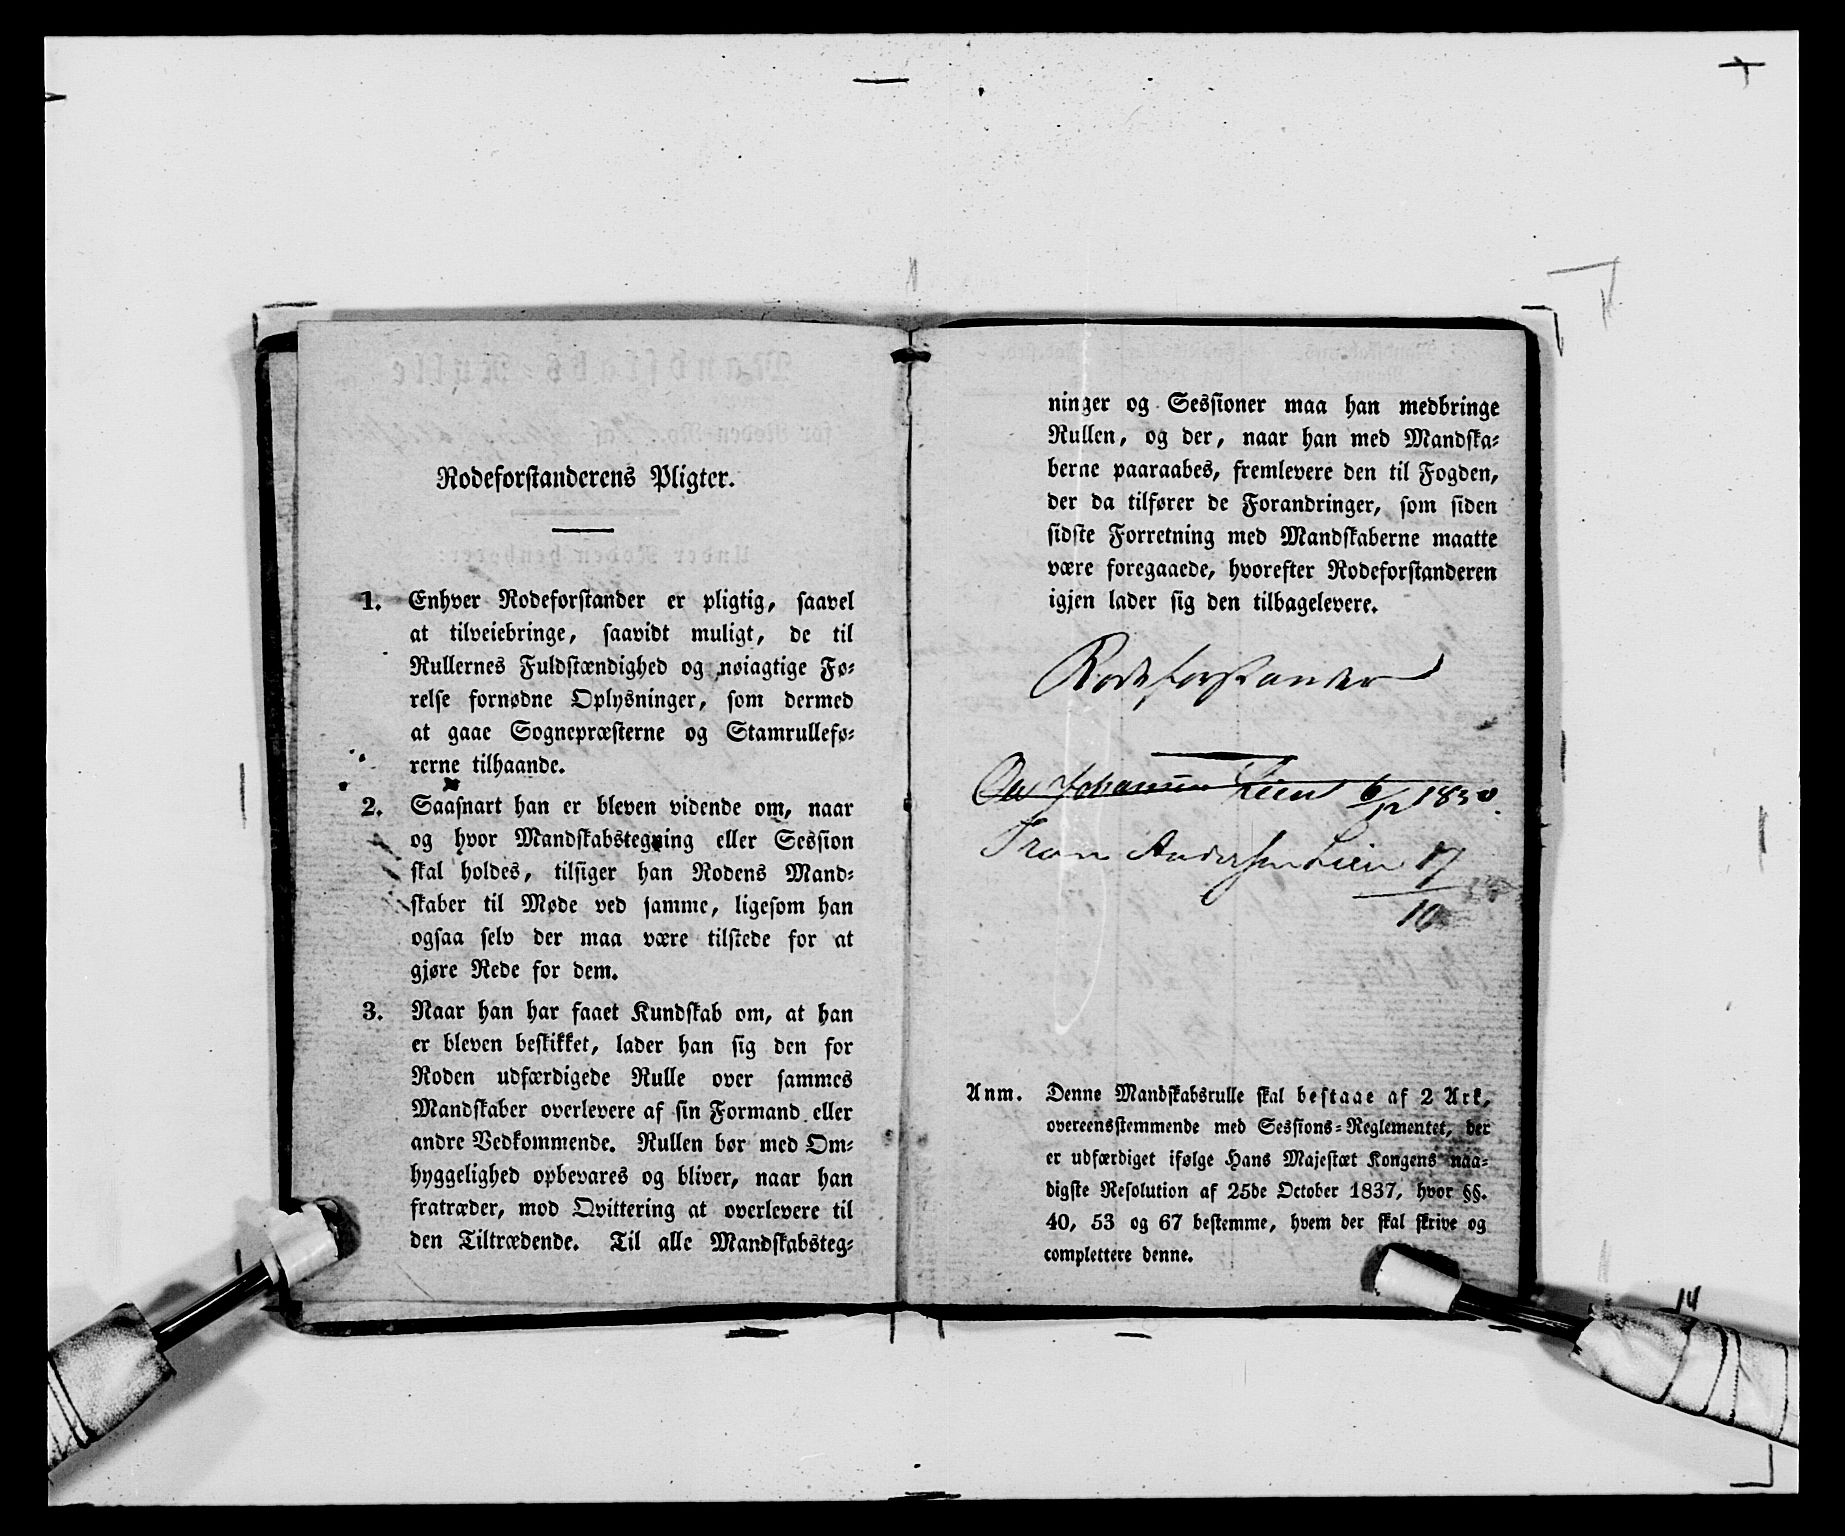 Rodeforstanderens Pligter.
1. Enhver Rodeforstander er pligtig, saavel
at tilveiebringe, saavidt muligt, de til
Rullernes Fuldstændighed og nøiagtige Fø-
relse fornødne Oplysninger, som dermed
at gaae Sognepræsterne og Stamrullefø-
rerne tilhaande.
2. Saasnart han er bleven vidende om, naar
og hvor Mandskabstegning eller Session
skal holdes, tilsiger han Rodens Mand-
skaber til Møde ved samme, ligesom han
ogsaa selv der maa være tilstede for at
gjøre Rede for dem.
3. Naar han har faaet Kundskab om, at han
er bleven beskikket, lader han sig den for
Roden udfærdigede Rulle over sammes
Mandskaber overlevere af sin Formand eller
andre Vedkommende. Rullen bør med Om-
hyggelighed opbevares og bliver, naar han
fratræder, mod Qvittering at overlevere til
den Tiltrædende. Til alle Mandskabsteg-
ninger og Sessioner maa han medbringe
Rullen, og der, naar han med Mandska-
berne paaraabes, fremlevere den til Fogden,
der da tilfører de Forandringer, som siden
sidste Forretning med Mandskaberne maatte
være foregaaede, hvorefter Rodeforstanderen
igjen lader sig den tilbagelevere.
Rodeforstander
Ole Johannsen Lien 6/12 1850.
Andersen Lien 17
10
Anm. Denne Mandskabsrulle skal bestaae af 2 Ark,
overeensstemmende med Sessions-Reglementet, der
er udfærdiget ifølge Hans Majestæt Kongens naa-
digste Resolution af 25de October 1837, hvor §§.
40, 53 og 67 bestemme, hvem der skal skrive og
complettere denne.
14